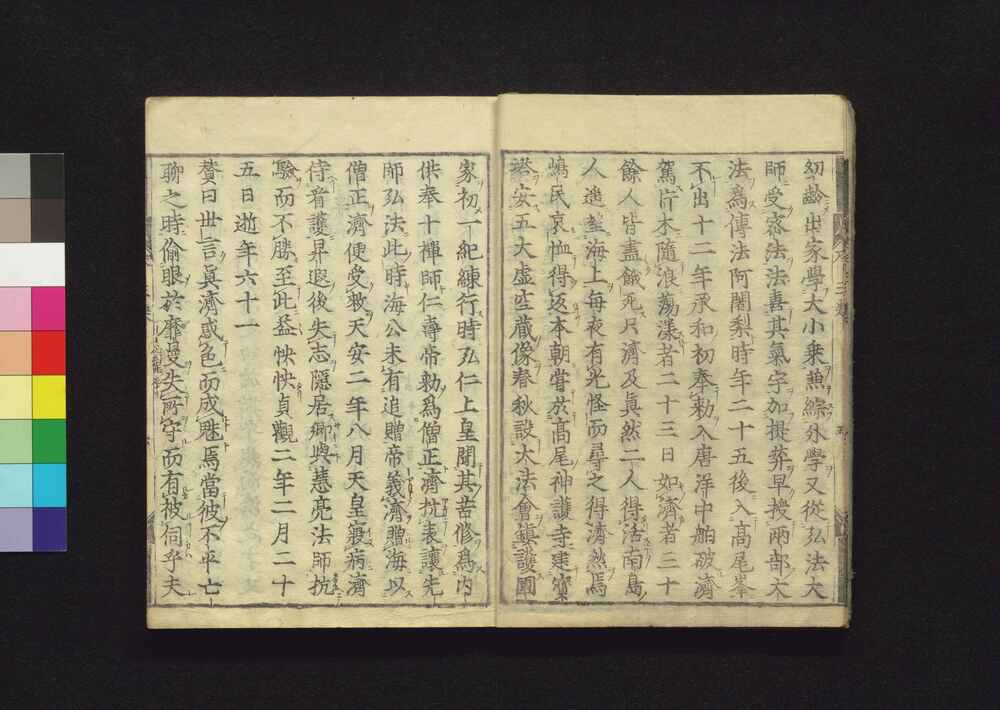 幼齡出家學大小乘兼綜外學又從弘法大
師受密法法喜其氣宇加提奬早授兩部大
法爲傳法阿闍梨時年二十五後入高尾峯
不出十二年承和初奉勅入唐洋中舶破濟
駕片木隨浪蕩漾者二十三日如濟者三十
餘人皆盡餓死只濟及眞然二人得活南島
人遙望海上每夜有光怪而尋之得濟然焉
嶋民哀恤得返本朝嘗於高尾神護寺建寶
塔安五大虛空藏像春秋設大法會鎭護國
家初一紀練行時弘仁上皇聞其苦修爲内
供奉十禪師仁壽帝勅爲僧正濟抗表讓先
師弘法此時海公未有追贈帝義濟贈海以
僧正濟便受救天安二年八月天皇寢病濟
侍看護昇遐後失志隱居卿與慧亮法師抗
驗而不勝至此益怏怏貞觀二年二月二十
五日逝年六十一
贊曰世言眞濟惑色而成魅焉當彼不平亡
聊之時偷眼於靡曼失所守而有被伺乎夫